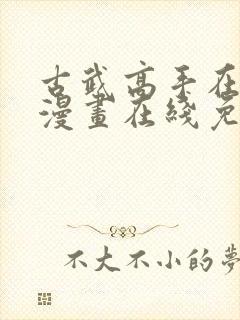 古武高手在
漫畫在綫免
不大不小的夢